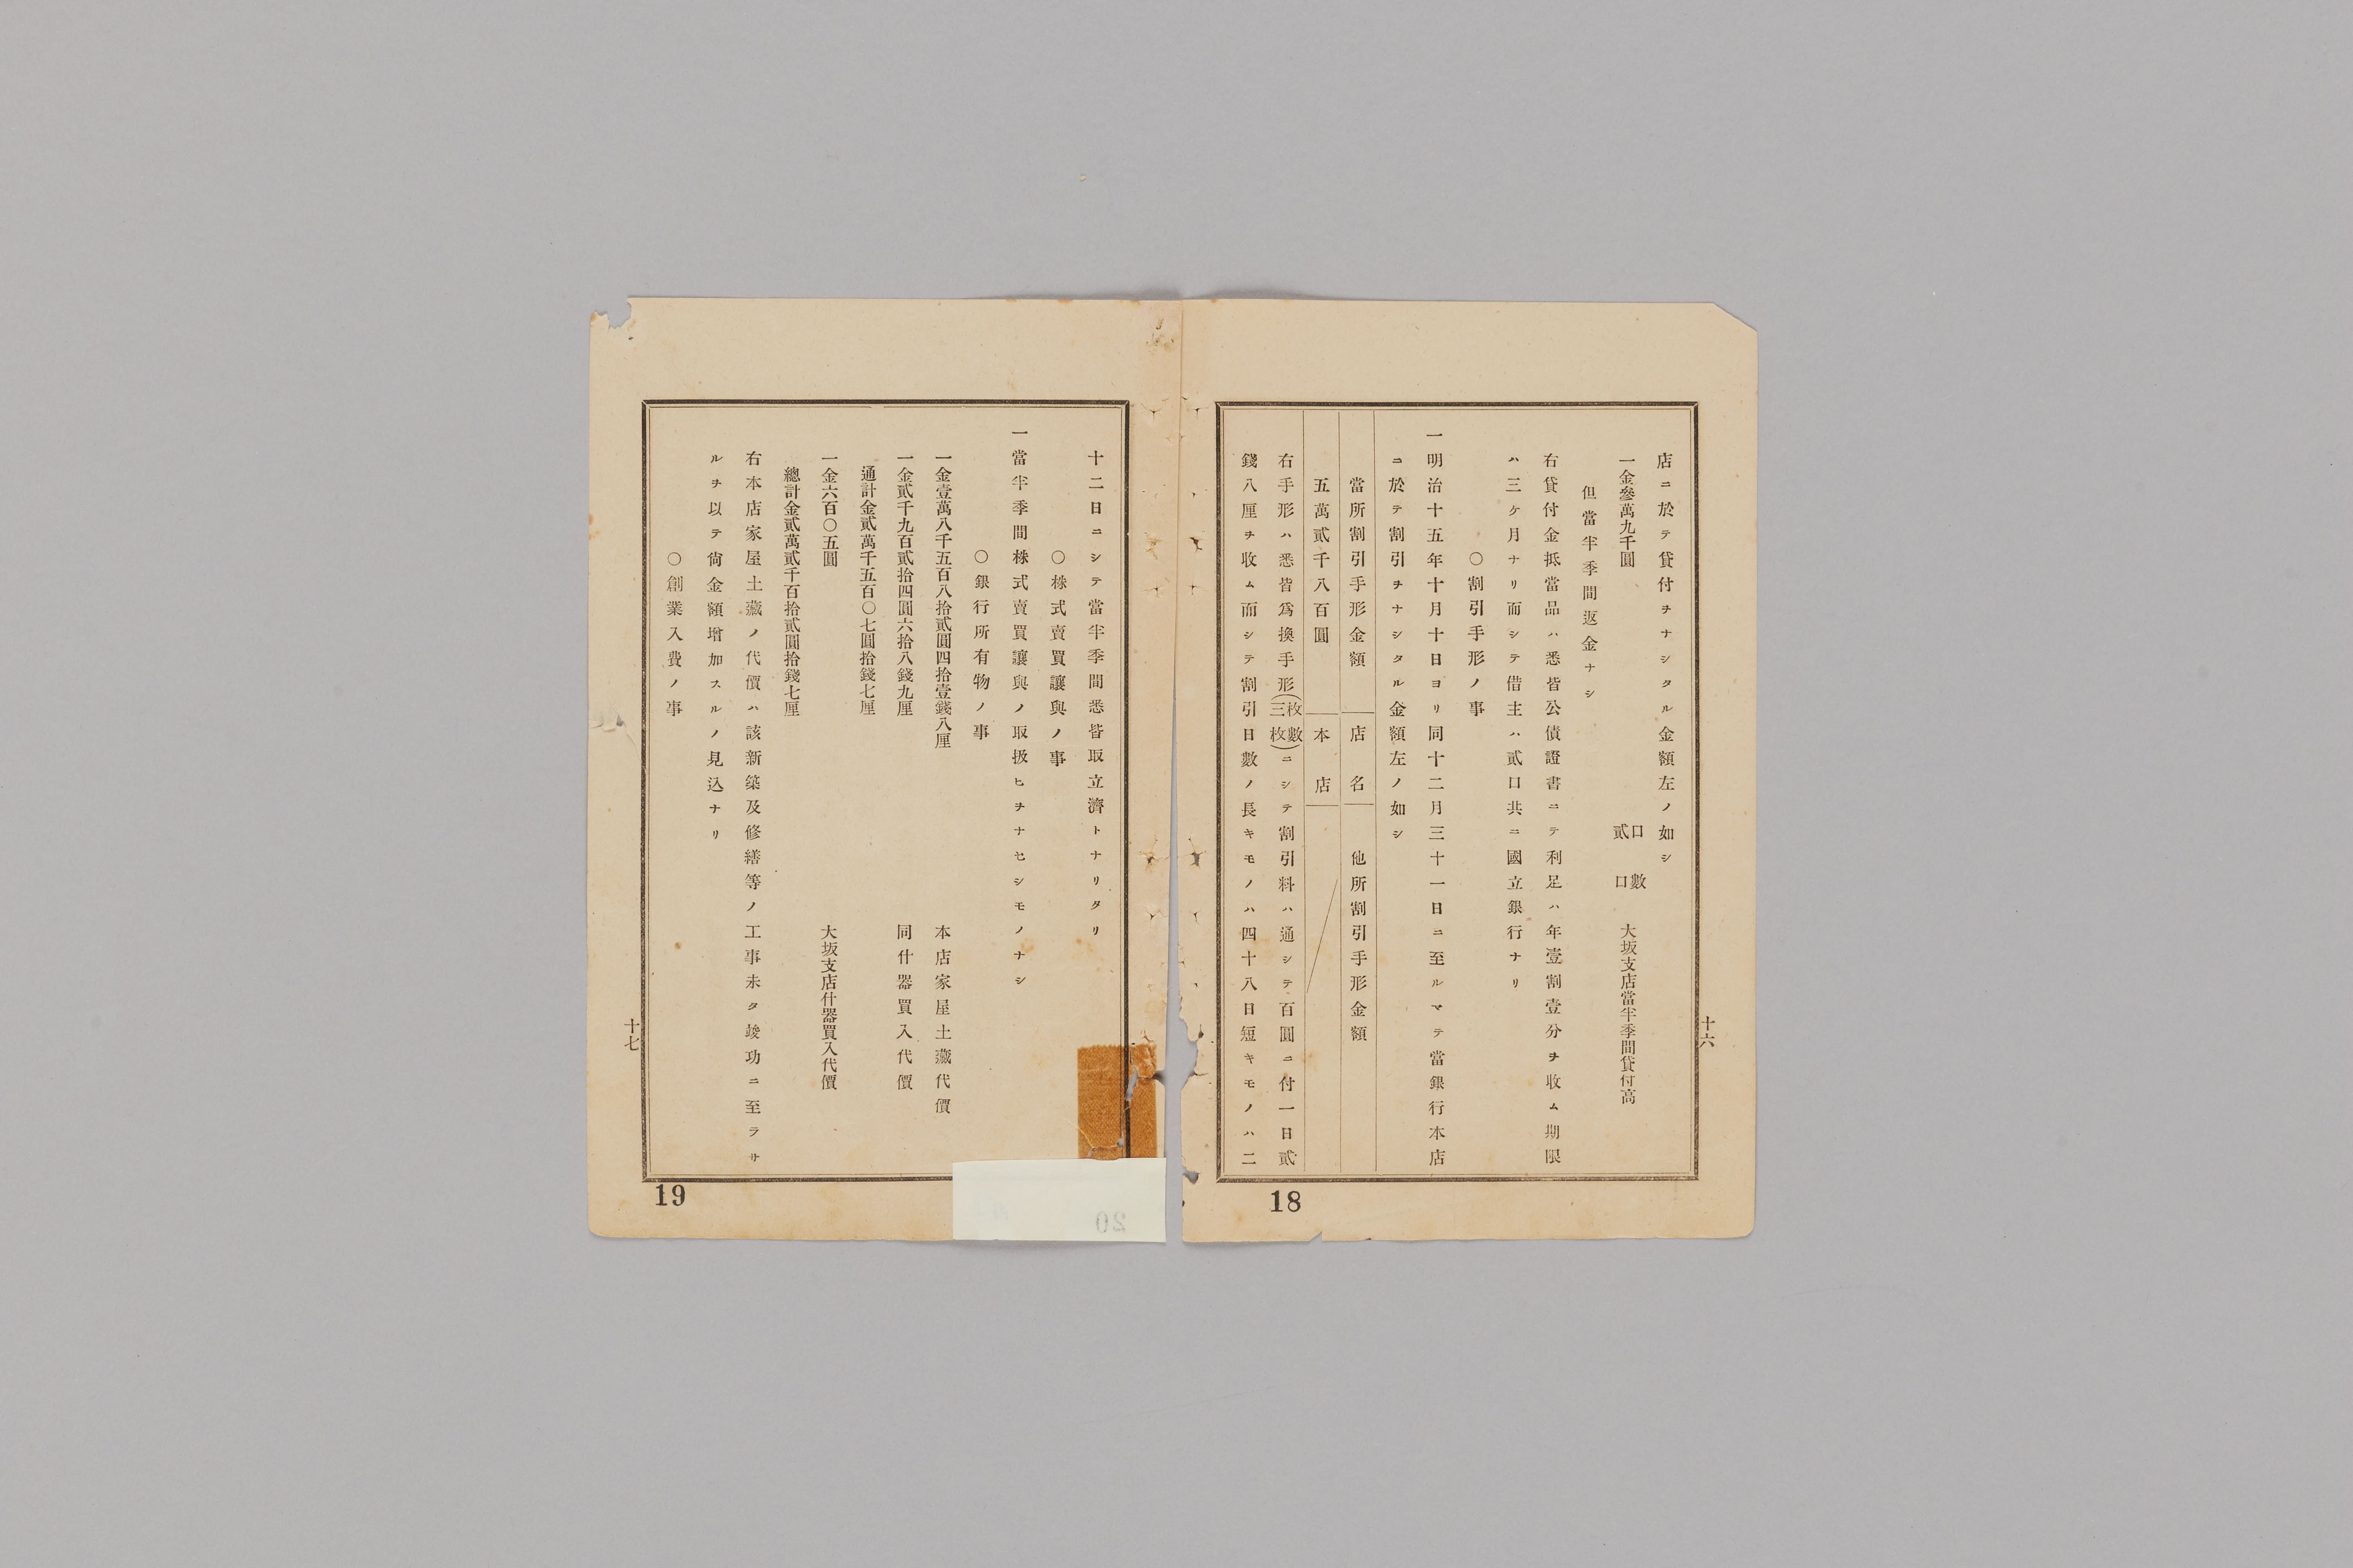 店ニ於テ貸付ヲナシタル金額左ノ如シ
一金參萬九千圓 口數貳口 大坂支店當半季間貸付高
但當半季間返金ナシ
右貸付金抵當品ハ悉皆公債證書ニテ利足ハ年壹割壹分ヲ收ム期限
ハ三ケ月ナリ而シテ借主ハ貳口共ニ國立銀行ナリ
〇割引手形ノ事
一明治十五年十月十日ヨリ同十二月三十一日ニ至ルマテ當銀行本店
ニ於テ割引ヲナシタル金額左ノ如シ
當所割引手形金額 店名 他所割引手形金額
五萬貳千八百圓 本店
右手形ハ悉皆爲換手形(枚數三枚)ニシテ割引料ハ通シテ百圓ニ付一日貳
錢八厘ヲ收ム而シテ割引日數ノ長キモノハ四十八日短キモノハ二
十六
18
十二日ニシテ當半季間悉皆取立濟トナリタリ
〇株式賣買讓與ノ事
一當半季間株式賣買讓與ノ取扱ヒヲナセシモノナシ
〇銀行所有物ノ事
一金壹萬八千五百八拾貳圓四拾壹錢八厘 本店家屋土藏代價
一金貳千九百貳拾四圓六拾八錢九厘 同什器買入代價
通計金貳萬千五百〇七圓拾錢七厘
一金六百〇五圓 大坂支店什器買入代價
總計金貳萬貳千百拾貳圓拾錢七厘
右本店家屋土藏ノ代價ハ該新築及修繕等ノ工事未タ竣功ニ至ラサ
ルヲ以テ尙金額增加スルノ見込ナリ
〇創業入費ノ事
十七
19
20